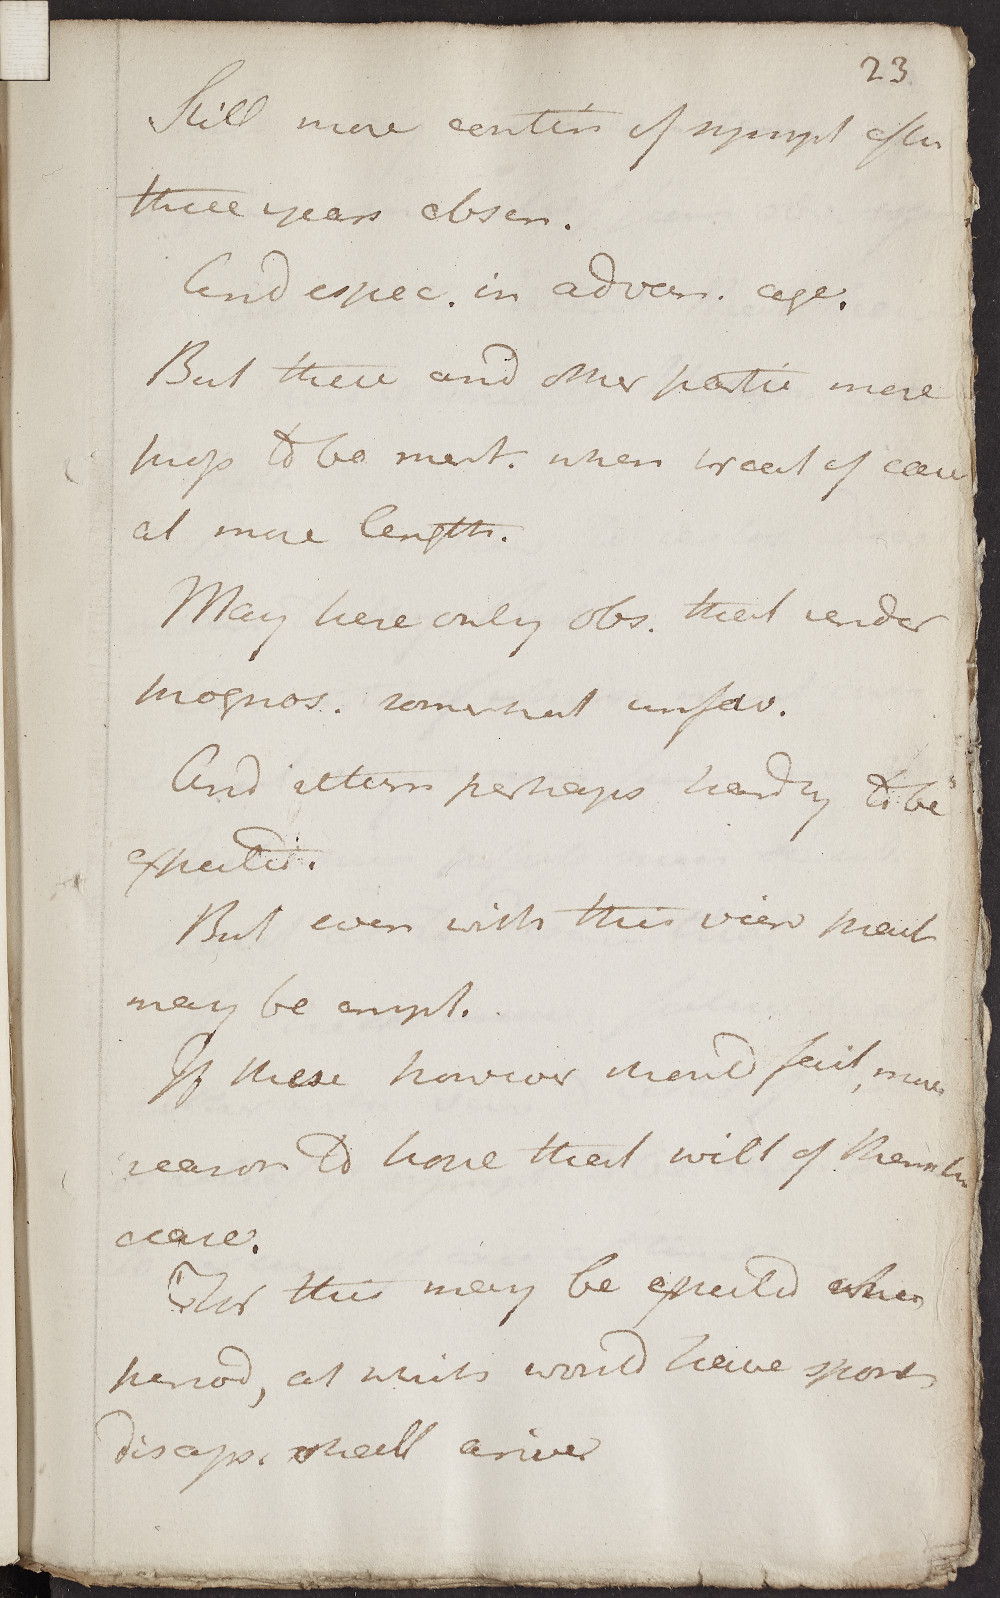 23
Still more contin of sympt after
three years obser.
And espec. in advan. age.
But these and other partic more
prop to be ment. when treat of
at more length.
May here only obs. that render
prognos. somewhat unfav.
And return perhaps hardly to be
expected.
But even with this view pract
may be empl.
If these however should fail, more
reason to hope that will of themselv
cease.
For this may be expected when
period, at which would have spont
disapp. shall arrive